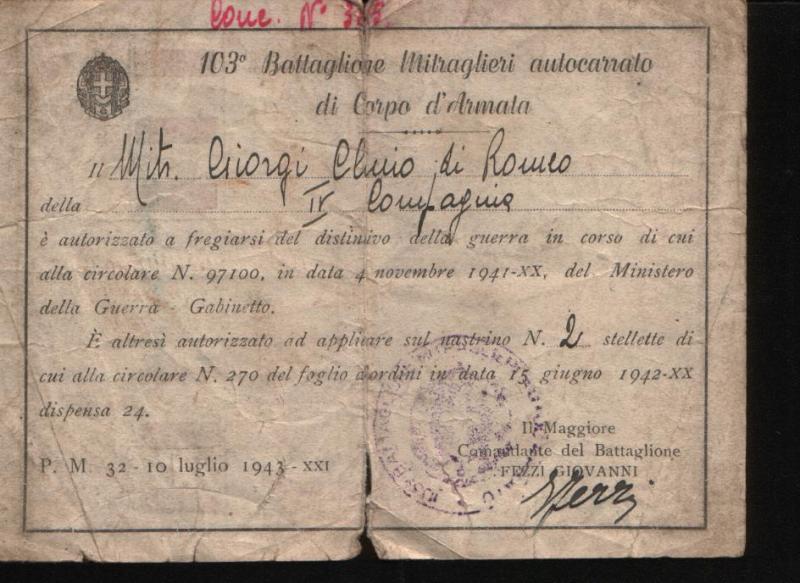 Conc. N° 
103° Battaglione Mitraglieri autocarrato
di Corpo d'Armata
Il Mitr. Giorgi di Romeo
della IV Compagnia
è autorizzato a fregiarsi del distinivo della guerra in corso di cui
alla circolare N. 97100, in data 4 novembre 1941-XX, del Ministero
della Guerra - Gabinetto.
È altresì autorizzato ad applicare sul nastrino N. 2 stellette di
cui alla circolare N. 270 del foglio d'ordini in data 15 giugno 1942-XX
dispensa 24.
Il Maggiore
Comandante del Battaglione
P. M. 32 - 10 luglio 1943 - XXI
FEZZI GIOVANNI